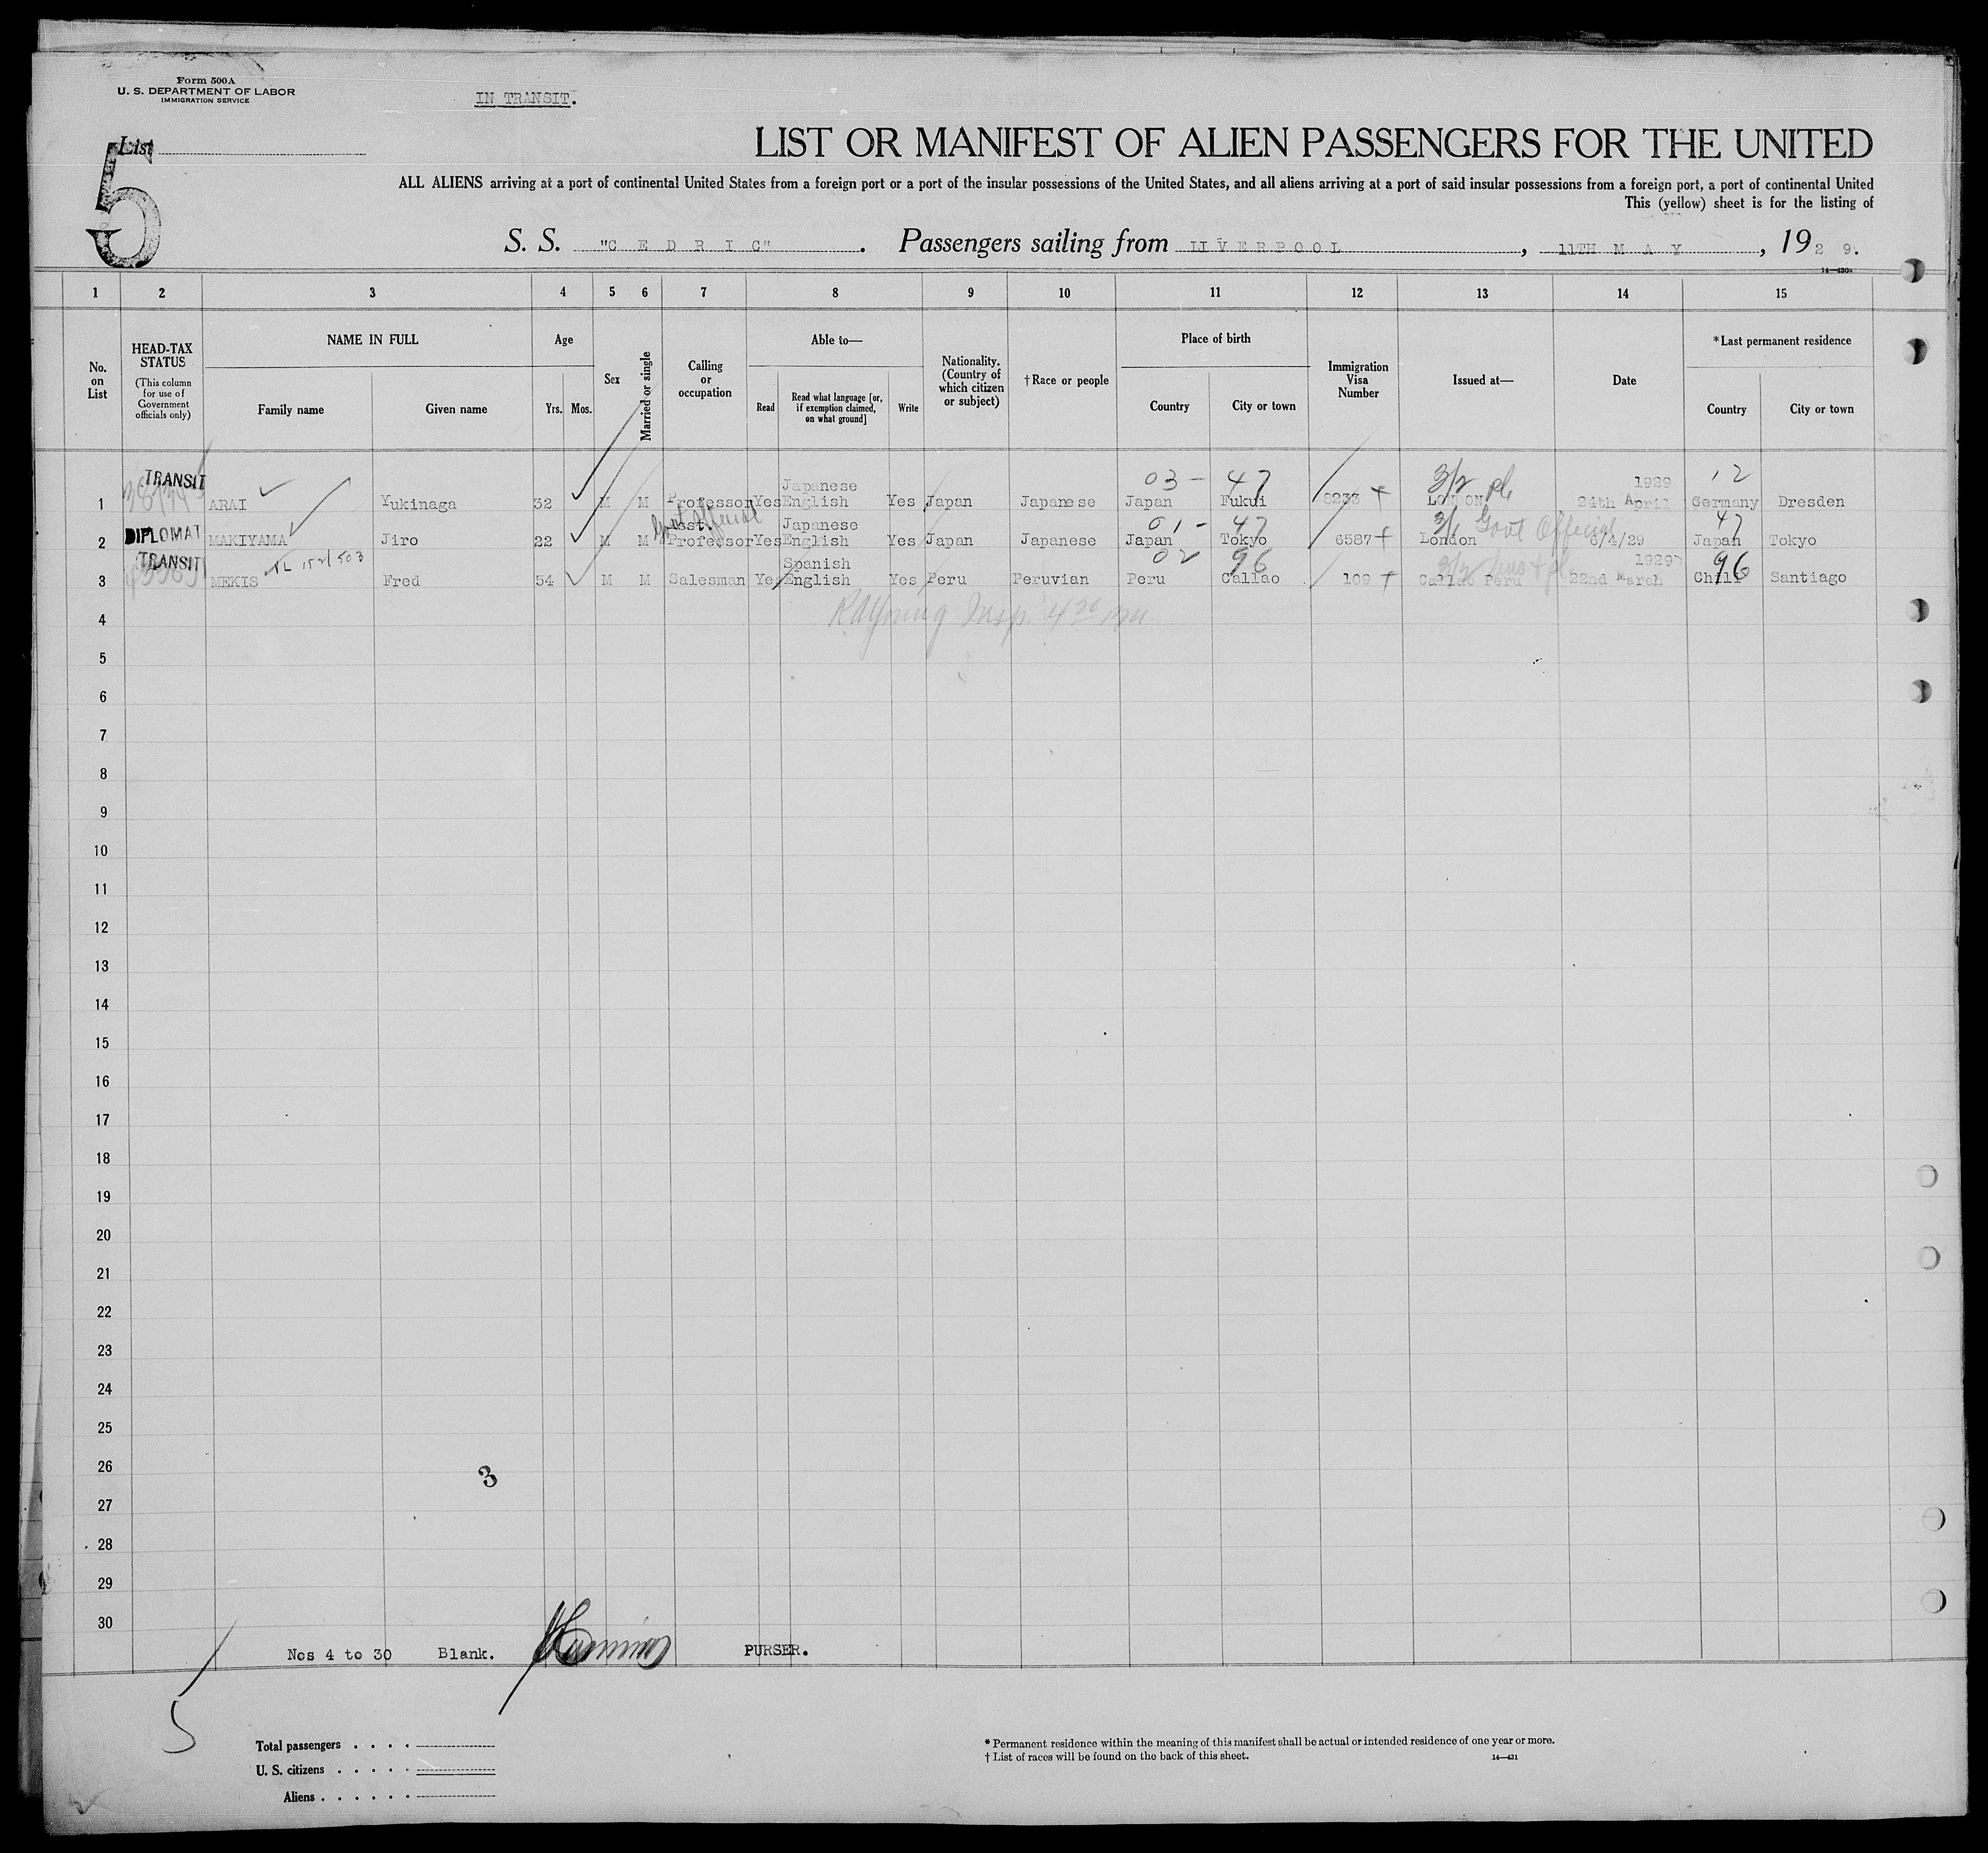 Form 500A
U. S. DEPARTMENT OF LABOR
IMMIGRATION SERVICE
IN TRANSIT.
List
5
LIST OR MANIFEST OF ALIEN PASSENGERS FOR THE UNITED
ALL ALIENS arriving at a port of continental United States from a foreign port or a port of the insular possessions of the United States, and all aliens arriving at a port of said insular possessions from a foreign port, a port of continental United
This (yellow) sheet is for the listing of
S. S. "C E D R I C". Passengers sailing from LIVERPOOL, 11TH M A Y, 192 9.
14—430a
1 2 3 4 5 6 7 8 9 10 11 12 13 14 15
No. on List
HEAD-TAX STATUS
(This column for use of Government officials only)
NAME IN FULL
Family name Given name
Age
Yrs. Mos.
Sex
Married or single
Calling or occupation
Able to—
Read
Read what language [or, if exemption claimed, on what ground]
Write
Nationality. (Country of which citizen or subject)
†Race or people
Place of birth
Country City or town
Immigration Visa Number
Issued at—
Date
*Last permanent residence
Country City or town
TRANSIT Japanese 03 - 47 3/2 pl 1929 12
1 ARAI Yukinaga 32 M M Professor Yes English Yes Japan Japanese Japan Fukui 8233 LONDON 24th April Germany Dresden
DIPLOMAT Govt Official Asst. Japanese 01 - 47 3/1 Govt Official 47
2 MAKIYAMA Jiro 22 M M Professor Yes English Yes Japan Japanese Japan Tokyo 6587 London 6/4/29 Japan Tokyo
TRANSIT Spanish 02 96 1929 96
3 MEKIS Fred 54 M M Salesman Yes English Yes Peru Peruvian Peru Callao 109 Callao Peru 22nd March Chili Santiago
4
5
6
7
8
9
10
11
12
13
14
15
16
17
18
19
20
21
22
23
24
25
26
3
27
28
29
30
Nos 4 to 30 Blank. PURSER.
5
Total passengers . . . .
U. S. citizens . . . . .
Aliens . . . . . .
* Permanent residence within the meaning of this manifest shall be actual or intended residence of one year or more.
† List of races will be found on the back of this sheet.
14—431